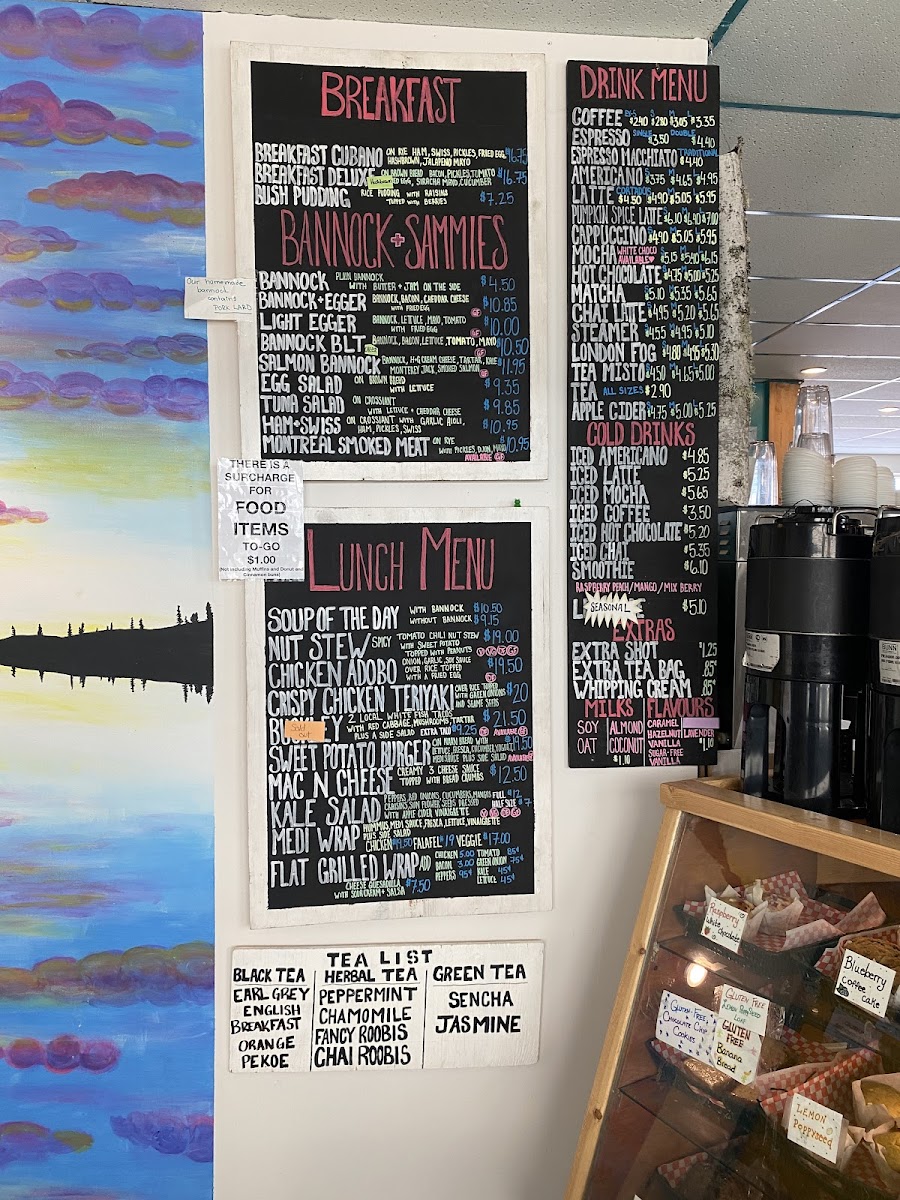 BREAKFAST
BREAKFAST CUBANO ON RYE HAM, SWISS, PICKLES, FRIED EGG, $16.75
HASHBROWN, JALAPENO MAYO
BREAKFAST DELUXE ON BROWN BREAD BACON, PICKLES, TOMATO $16.75
EGG, SIRACHA MAYO, CUCUMBER
BUSH PUDDING RICE PUDDING WITH RAISINS $7.25
TOPPED WITH BERRIES
BANNOCK + SAMMIES
BANNOCK PLAIN BANNOCK $4.50
WITH BUTTER + JAM ON THE SIDE
BANNOCK+EGGER BANNOCK, BACON, CHEDDAR CHEESE $10.85
WITH FRIED EGG
LIGHT EGGER BANNOCK, LETTUCE, MAYO, TOMATO $10.00
WITH FRIED EGG GF
BANNOCK BLT BANNOCK, BACON, LETTUCE, TOMATO, MAYO $10.50
SALMON BANNOCK BANNOCK, CREAM CHEESE, TARTAR, KALE $11.95
MONTEREY JACK, SMOKED SALMON GF
EGG SALAD ON BROWN BREAD $9.35
WITH LETTUCE
TUNA SALAD ON CROSSIANT $9.85
WITH LETTUCE + CHEDDAR CHEESE
HAM+SWISS ON CROSSIANT WITH GARLIC AIOLI, $10.95
HAM, PICKLES, SWISS
MONTREAL SMOKED MEAT ON RYE $10.95
WITH PICKLES, DIJON, MAYO
AVAILABLE GF
Our homemade
bannock
contains
PORK LARD
THERE IS A
SURCHARGE
FOR
FOOD
ITEMS
TO-GO
$1.00
(Not including Muffins and Donut and
Cinnamon buns)
LUNCH MENU
SOUP OF THE DAY WITH BANNOCK $10.50
WITHOUT BANNOCK $9.15
NUT STEW SPICY TOMATO CHILI NUT STEW $19.00
WITH SWEET POTATO
TOPPED WITH PEANUTS
CHICKEN ADOBO ONION, GARLIC, SOY SAUCE $19.50
OVER RICE TOPPED
WITH A FRIED EGG
CRISPY CHICKEN TERIYAKI OVER RICE TOPPED $20
WITH GREEN ONIONS
AND SESAME SEEDS
2 LOCAL WHITE FISH TACOS $21.50
WITH RED CABBAGE, MUSHROOMS, TARTAR
PLUS A SIDE SALAD EXTRA TACO $9.25
Sold out
SWEET POTATO BURGER $19.50
PLUS SIDE SALAD
MAC N CHEESE CREAMY 3 CHEESE SAUCE $12.50
TOPPED WITH BREAD CRUMBS
KALE SALAD PEPPERS, RED ONIONS, CUCUMBERS, MANGOS FULL $12
CRAISINS, SUN FLOWER SEEDS DRESSED HALF SIZE $7
WITH APPLE CIDER VINAIGRETTE
MEDI WRAP HUMMUS, MEDI SAUCE, FRESCA, LETTUCE, VINAIGRETTE
PLUS SIDE SALAD
CHICKEN $19.50 FALAFEL $19 VEGGIE $17.00
FLAT GRILLED WRAP ADD CHICKEN 5.00 TOMATO 85¢
BACON 3.00 GREEN ONION 75¢
PEPPERS 95¢ KALE 45¢
LETTUCE 45¢
CHEESE QUESADILLA $7.50
WITH SOUR CREAM + SALSA
TEA LIST
BLACK TEA
EARL GREY
ENGLISH
BREAKFAST
ORANGE
PEKOE
HERBAL TEA
PEPPERMINT
CHAMOMILE
FANCY ROOBIS
CHAI ROOBIS
GREEN TEA
SENCHA
JASMINE
DRINK MENU
COFFEE $2.40 $2.80 $3.05 $3.35
ESPRESSO SINGLE $3.50 DOUBLE $4.40
ESPRESSO MACCHIATO TRADITIONAL $4.40
AMERICANO $3.75 $4.65 $4.95
LATTE CORTADOS $4.50 $4.90 $5.05 $5.95
PUMPKIN SPICE LATTE $6.10 $6.40 $7.00
CAPPUCCINO $4.90 $5.05 $5.95
MOCHA WHITE CHOCO AVAILABLE $5.15 $5.40 $6.15
HOT CHOCOLATE $4.75 $5.00 $5.25
MATCHA $5.10 $5.35 $5.65
CHAI LATTE $4.95 $5.20 $5.65
STEAMER $4.55 $4.95 $5.10
LONDON FOG $4.80 $4.95 $5.30
TEA MISTO $4.50 $4.65 $5.00
TEA ALL SIZES $2.90
APPLE CIDER $4.75 $5.00 $5.25
COLD DRINKS
ICED AMERICANO $4.85
ICED LATTE $5.25
ICED MOCHA $5.65
ICED COFFEE $3.50
ICED HOT CHOCOLATE $5.20
ICED CHAI $5.35
SMOOTHIE $6.10
RASPBERRY PEACH/MANGO/MIX BERRY
SEASONAL $5.10
EXTRAS
EXTRA SHOT $1.25
EXTRA TEA BAG .85¢
WHIPPING CREAM .85¢
MILKS
SOY ALMOND
OAT COCONUT
$1.10
FLAVOURS
CARAMEL
HAZELNUT LAVENDER
VANILLA $1.10
SUGAR-FREE
VANILLA
Raspberry
White chocolate
Blueberry
Coffee
cake
Gluten-Free
Chocolate Chip
Cookies
GLUTEN FREE
Lemon Poppyseed
Loaf
GLUTEN
FREE
Banana
Bread
LEMON
Poppyseed